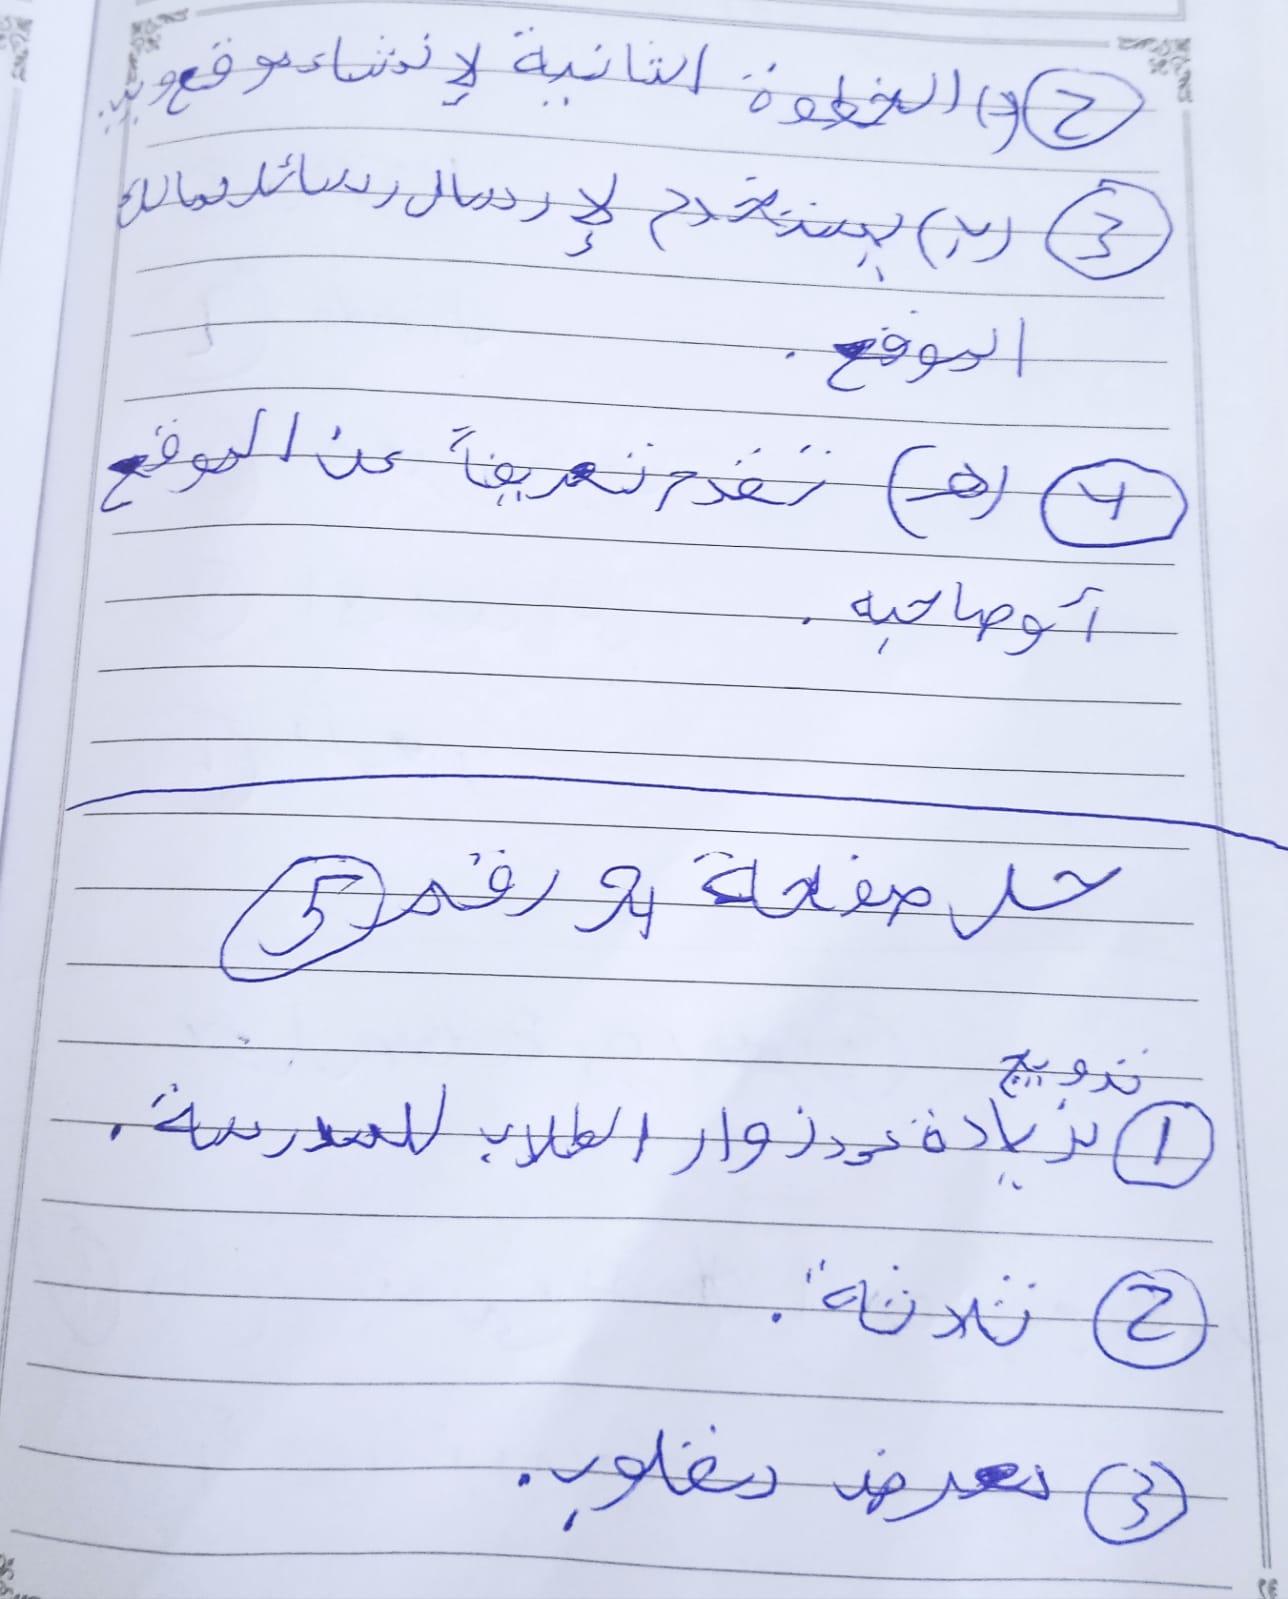 2 (و) الخطوة الثانية لإنشاء موقع ويب
3 (د) يستخدم لإرسال رسائل لمالك
الموقع .
4 (هـ) تقدم تعريفاً عن الموقع
أو صاحبه .
حل صفحة رقم 5
ترويج
1 لزيادة عدد زوار الطلاب للمدرسة .
2 ثلاثة .
3 معرض مقلوب .